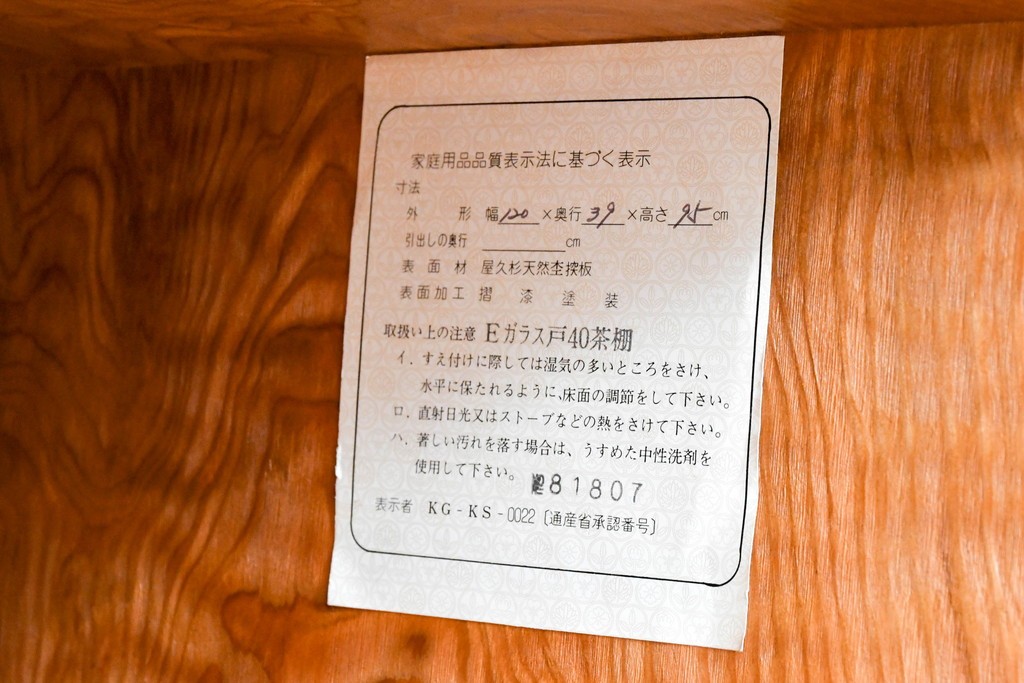 家庭用品品質表示法に基づく表示
寸法
外 形 幅120×奥行39×高さ95cm
引出しの奥行 ______cm
表面材 屋久杉天然杢突板
表面加工 摺漆塗装
取扱い上の注意 Eガラス戸40茶棚
イ.すえ付けに際しては湿気の多いところをさけ、
水平に保たれるように、床面の調節をして下さい。
ロ.直射日光又はストーブなどの熱をさけて下さい。
ハ.著しい汚れを落す場合は、うすめた中性洗剤を
使用して下さい。
81807
表示者 KG-KS-0022〔通産省承認番号〕